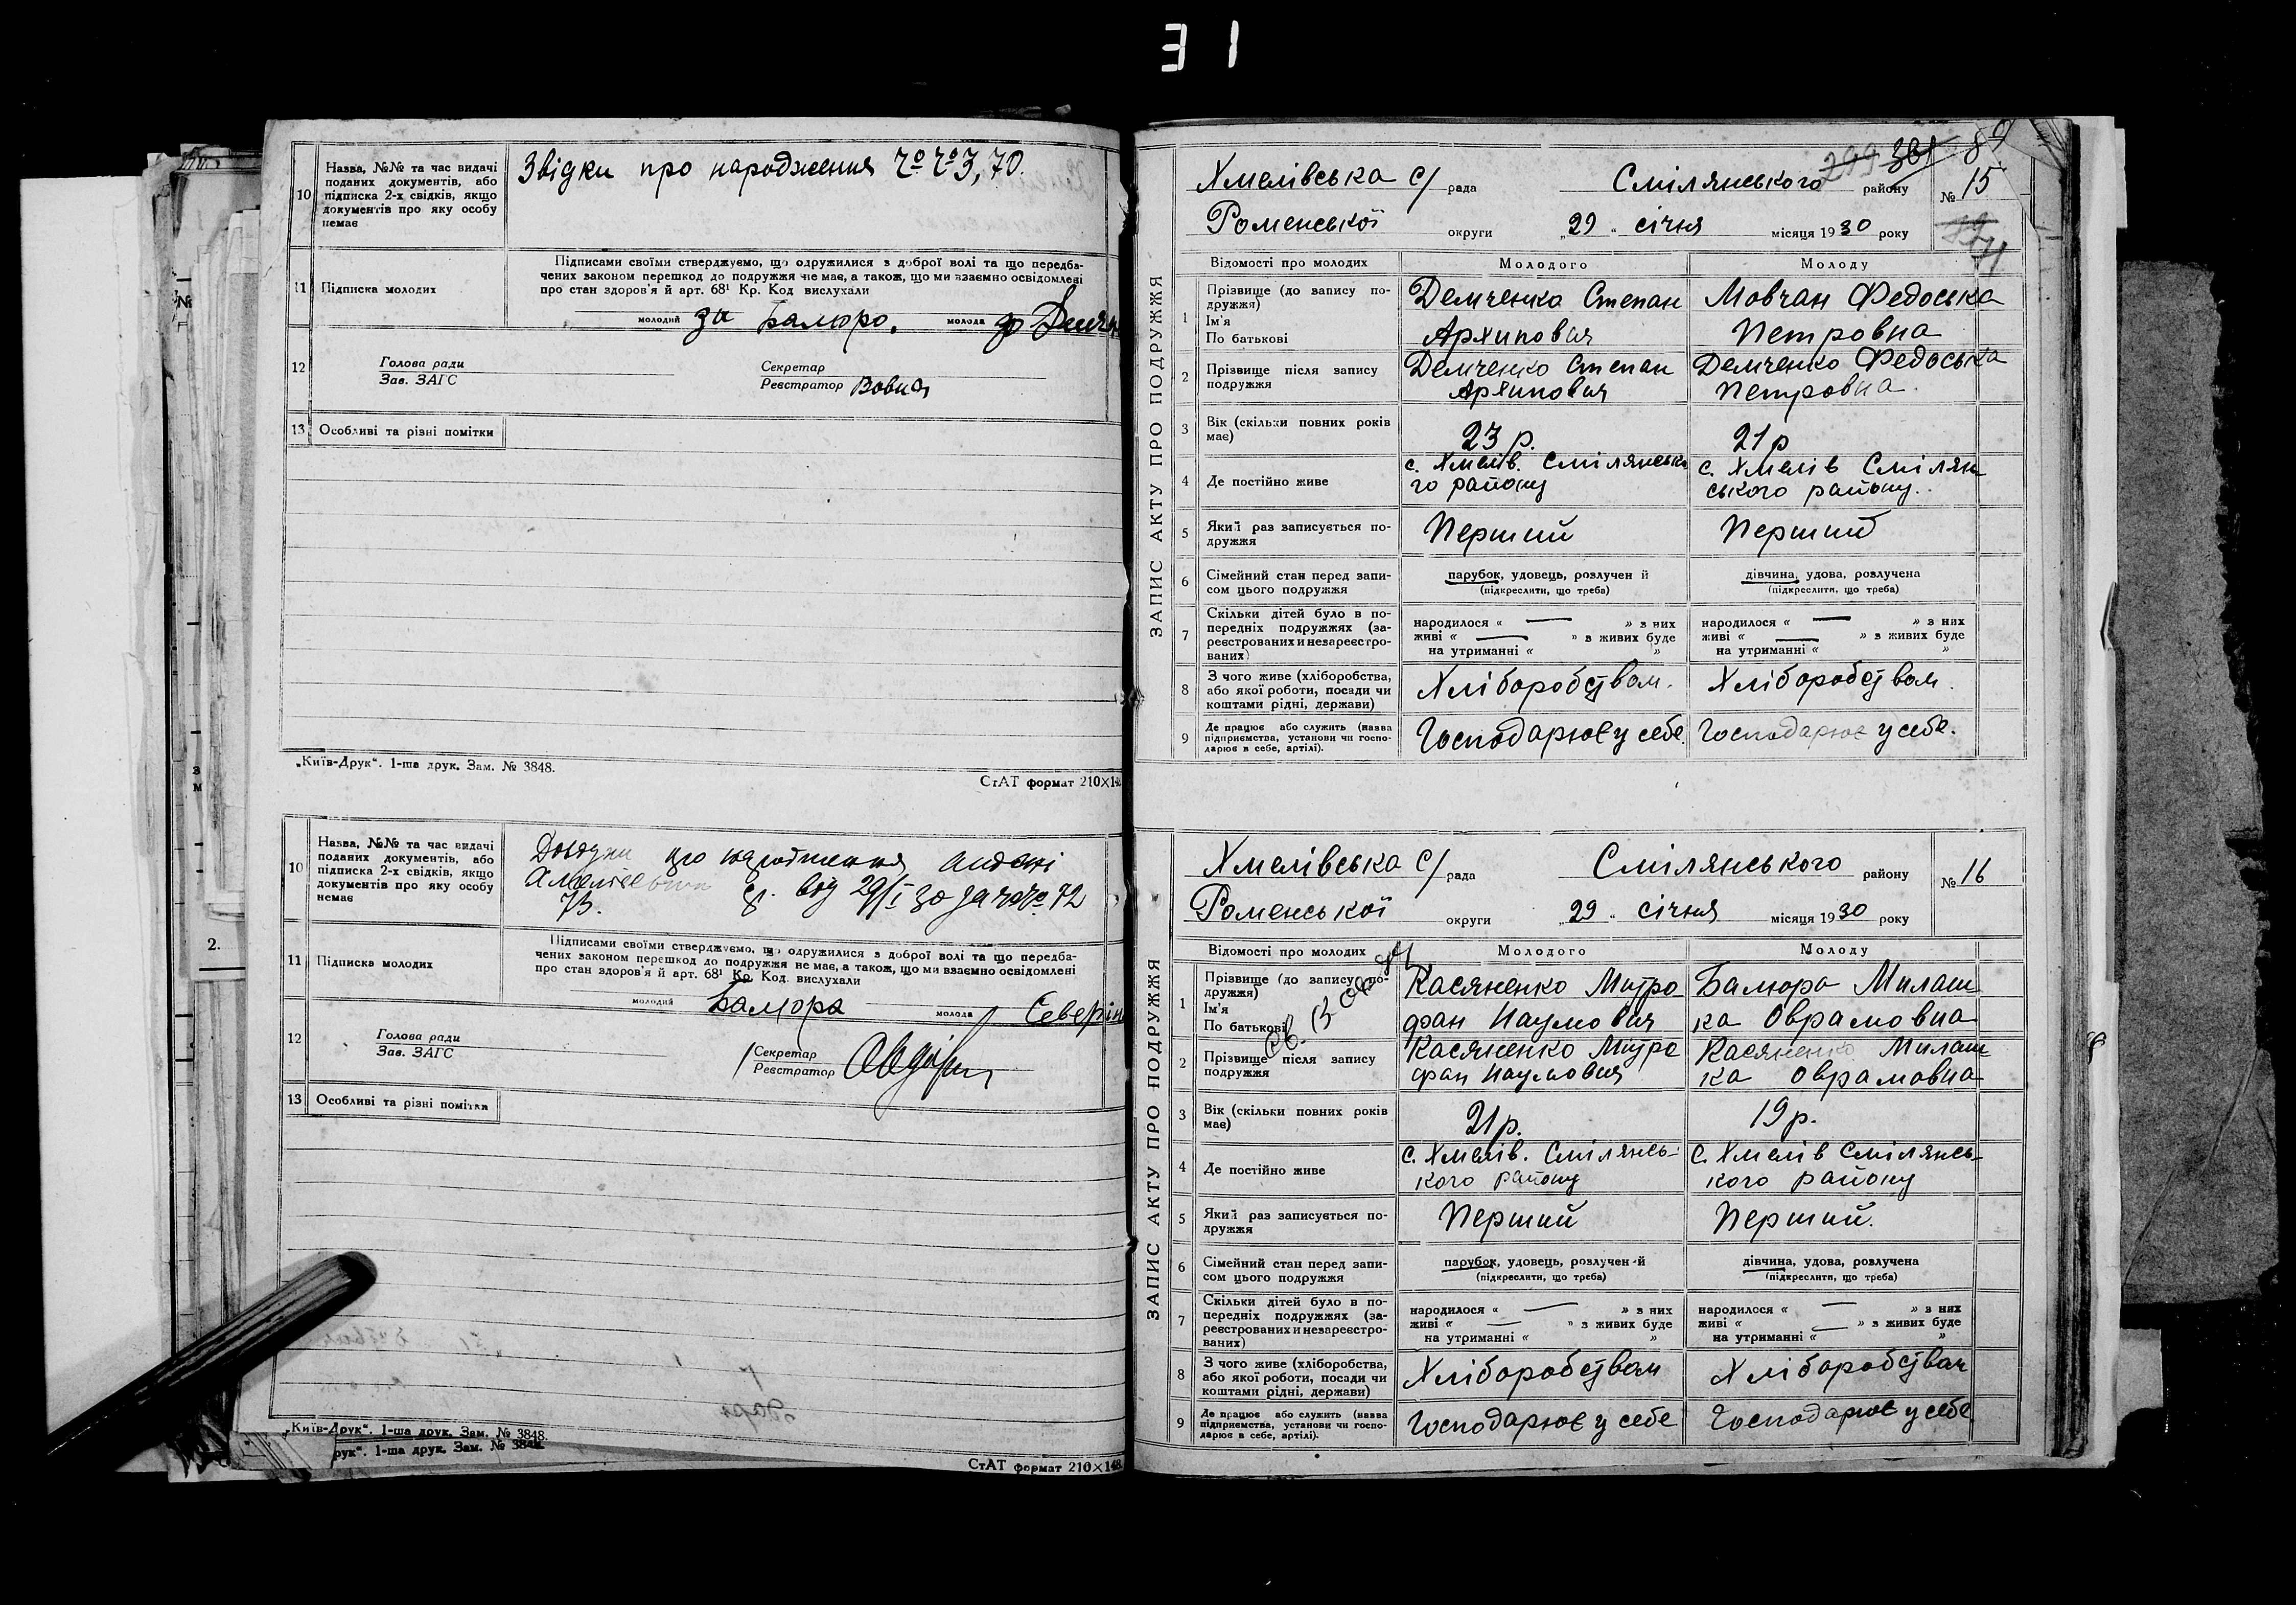 31
10
Назва, №№ та час видачі
поданих документів, або
підписка 2-х свідків, якщо
документів про яку особу
немає
Звідки про народження
11
Підписка молодих
Підписами своїми стверджуємо, що одружилися з доброї волі та що передба-
чених законом перешкод до подружжя не має, а також, що ми взаємно освідомлені
про стан здоров'я й арт. 68¹ Кр. Код вислухали
молодий за Балюро. молода
12
Голова ради
Зав. ЗАГС
Секретар
Реєстратор Вовна
13 Особливі та різні помітки
„Київ-Друк“. 1-ша друк. Зам. № 3848.
СтАТ формат 210×14
10
Назва, №№ та час видачі
поданих документів, або
підписка 2-х свідків, якщо
документів про яку особу
немає
про народження
від 29/I 30 за 72
73.
11
Підписка молодих
Підписами своїми стверджуємо, що одружилися з доброї волі та що передба-
чених законом перешкод до подружжя не має, а також, що ми взаємно освідомлені
про стан здоров'я й арт. 68¹ Кр. Код. вислухали
молодий Балюра молода
12
Голова ради
Зав. ЗАГС
Секретар
Реєстратор
13 Особливі та різні помітки
„Київ-Друк“. 1-ша друк. Зам. № 3848.
рук“. 1-ша друк. Зам. № 3848.
СтАТ формат 210×148
2.
299 301 89
Хмелівська с/ рада Смілянського району № 15
Роменської округи „29“ січня місяця 1930 року
ЗАПИС АКТУ ПРО ПОДРУЖЖЯ
Відомості про молодих Молодого Молоду
1
Прізвище (до запису по-
дружжя)
Ім'я
По батькові
Демченко Степан
Архипович
Мовчан Федоська
Петровна
2
Прізвище після запису
подружжя
Демченко Степан
Архипович
Демченко Федоська
Петровна.
3
Вік (скільки повних років
має)
23 р.
21 р
4
Де постійно живе
с. Хмелів. Смілянсько
го району
с. Хмелів Смілян
ського району.
5
Який раз записується по-
дружжя
Перший
Перший
6
Сімейний стан перед запи-
сом цього подружжя
парубок, удовець, розлучен й
(підкреслити, що треба)
дівчина, удова, розлучена
(підкреслити, що треба)
7
Скільки дітей було в по-
передніх подружжях (за-
реєстрованих и незареєстро-
ваних)
народилося « — » з них
живі « — » з живих буде
на утриманні « »
народилося « — » з них
живі « — » з живих буде
на утриманні « »
8
З чого живе (хліборобства,
або якої роботи, посади чи
коштами рідні, держави)
Хліборобством.
Хліборобством.
9
Де працює або служить (назва
підприємства, установи чи госпо-
дарює в себе, артілі).
Господарює у себе.
Господарює у себе.
Хмелівська с/ рада Смілянського району № 16
Роменської округи „29“ січня місяця 1930 року
ЗАПИС АКТУ ПРО ПОДРУЖЖЯ
Відомості про молодих Молодого Молоду
1
Прізвище (до запису по-
дружжя)
Ім'я
По батькові
Касяненко Митро
фан Наумович
Балюра Милаш
ка Оврамовна
2
Прізвище після запису
подружжя
Касяненко Митро
фан Наумович
Касяненко Милаш
ка Оврамовна
3
Вік (скільки повних років
має)
21 р.
19 р.
4
Де постійно живе
с. Хмелів. Смілянсь-
кого району
с. Хмелів Смілянсь-
кого району
5
Який раз записується по-
дружжя
Перший
Перший.
6
Сімейний стан перед запи-
сом цього подружжя
парубок, удовець, розлучен й
(підкреслити, що треба)
дівчина, удова, розлучена
(підкреслити, що треба)
7
Скільки дітей було в по-
передніх подружжях (за-
реєстрованих и незареєстро-
ваних)
народилося « — » з них
живі « — » з живих буде
на утриманні « »
народилося « — » з них
живі « — » з живих буде
на утриманні « »
8
З чого живе (хліборобства,
або якої роботи, посади чи
коштами рідні, держави)
Хліборобством
Хліборобствам
9
Де працює або служить (назва
підприємства, установи чи госпо-
дарює в себе, артілі).
Господарює у себе
Господарює у себе